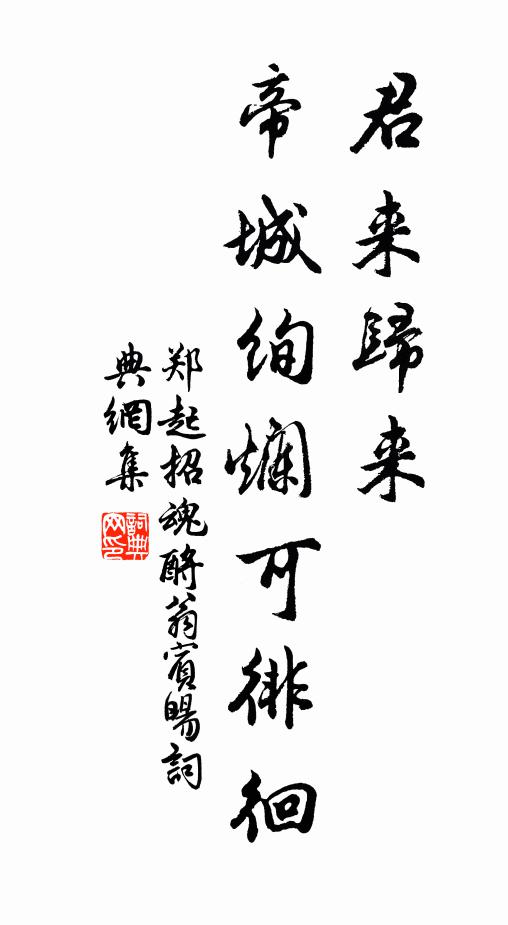 君来歸来
帝城绚爛可徘徊
郑起招魂酹翁賓暘詞
典網集
詞典网印